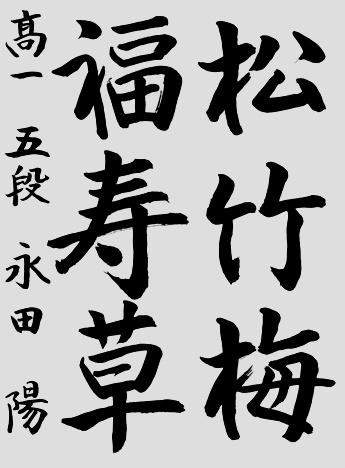 松竹梅
福寿草
高一 五段 永田 陽